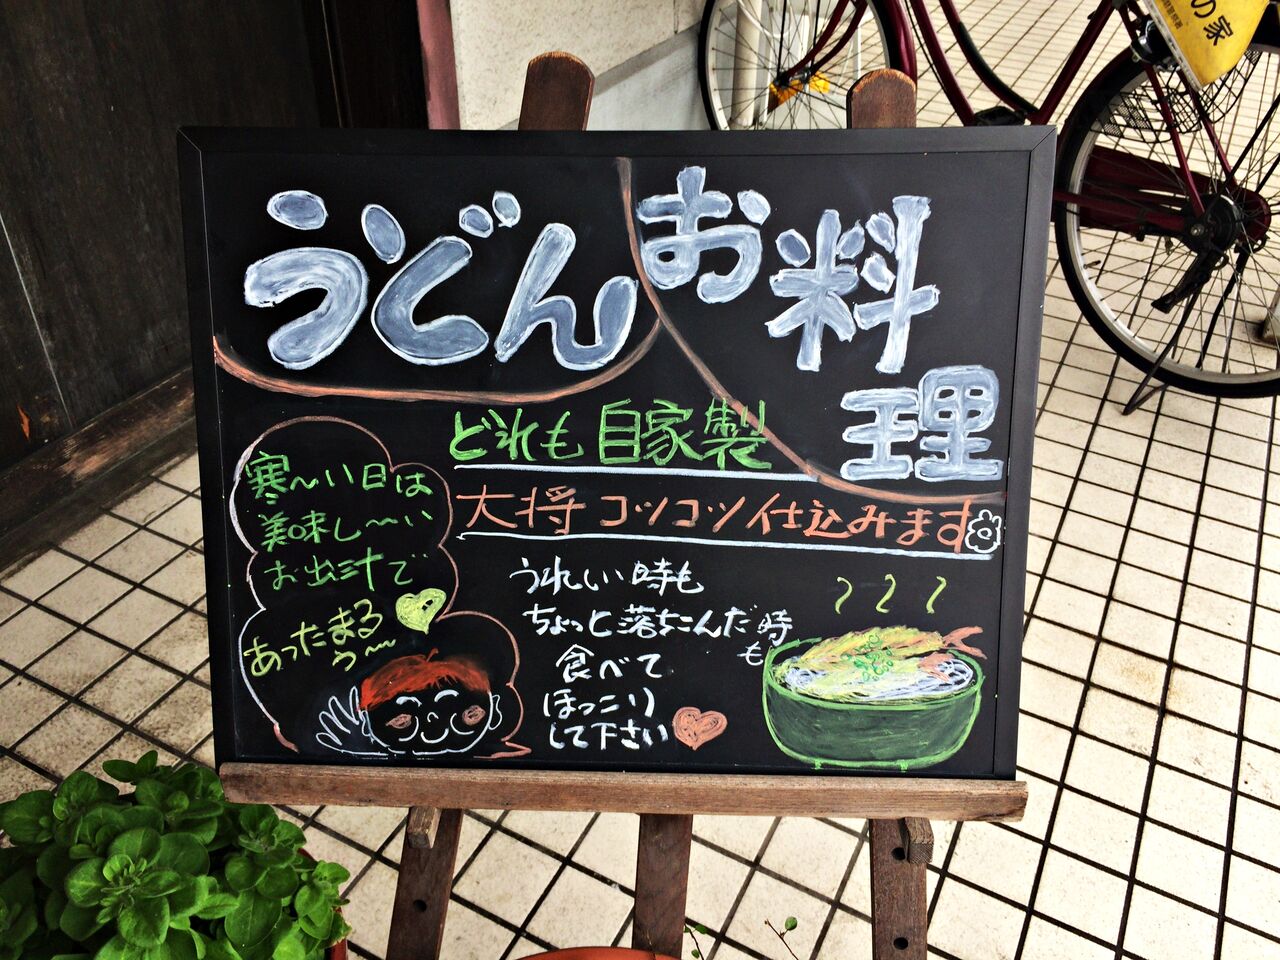 うどん
お料理
どれも自家製
大将コツコツ仕込みます
寒〜い日は
美味し〜い
お出汁で
あったまる
う〜
うれしい時も
ちょっと落ちこんだ時も
食べて
ほっこり
して下さい
の家